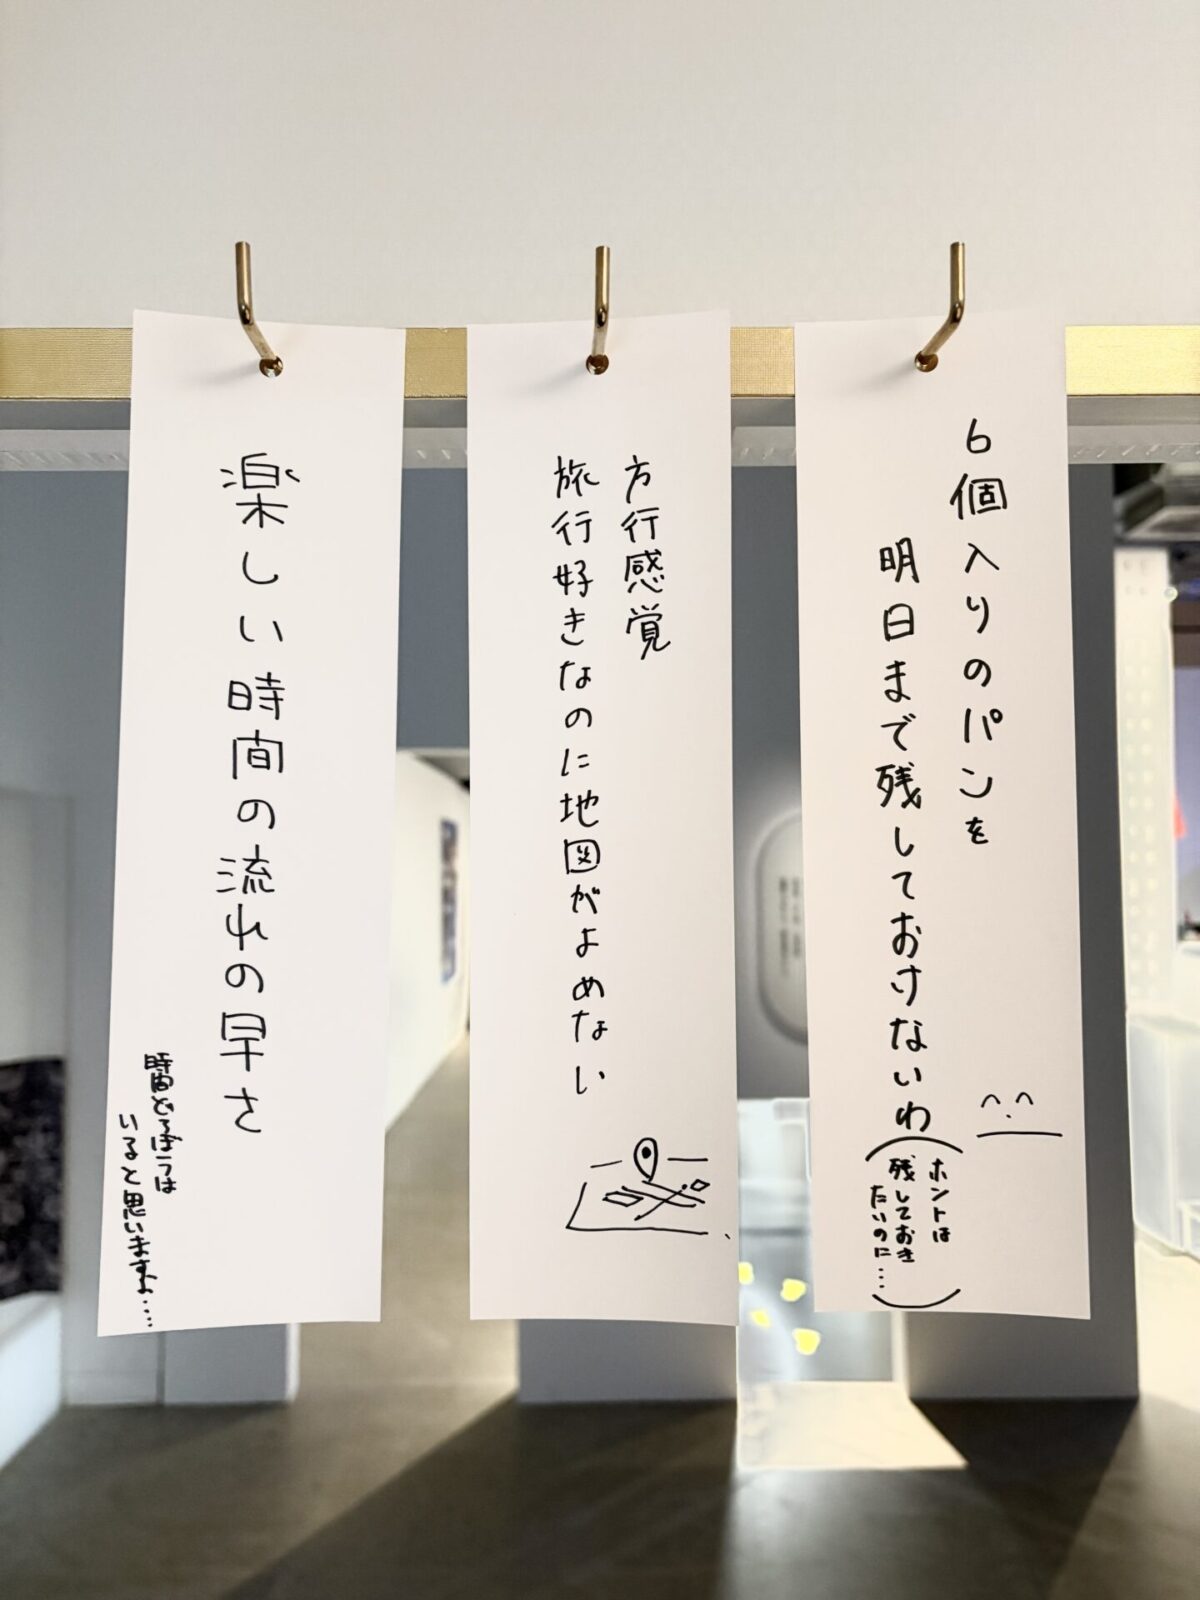 6個入りのパンを
明日まで残しておけないわ
(ホントは
残しておき
たいのに…)
方行感覚
旅行好きなのに地図がよめない
楽しい時間の流れの早さ
時間どろぼうは
いると思いますよ….